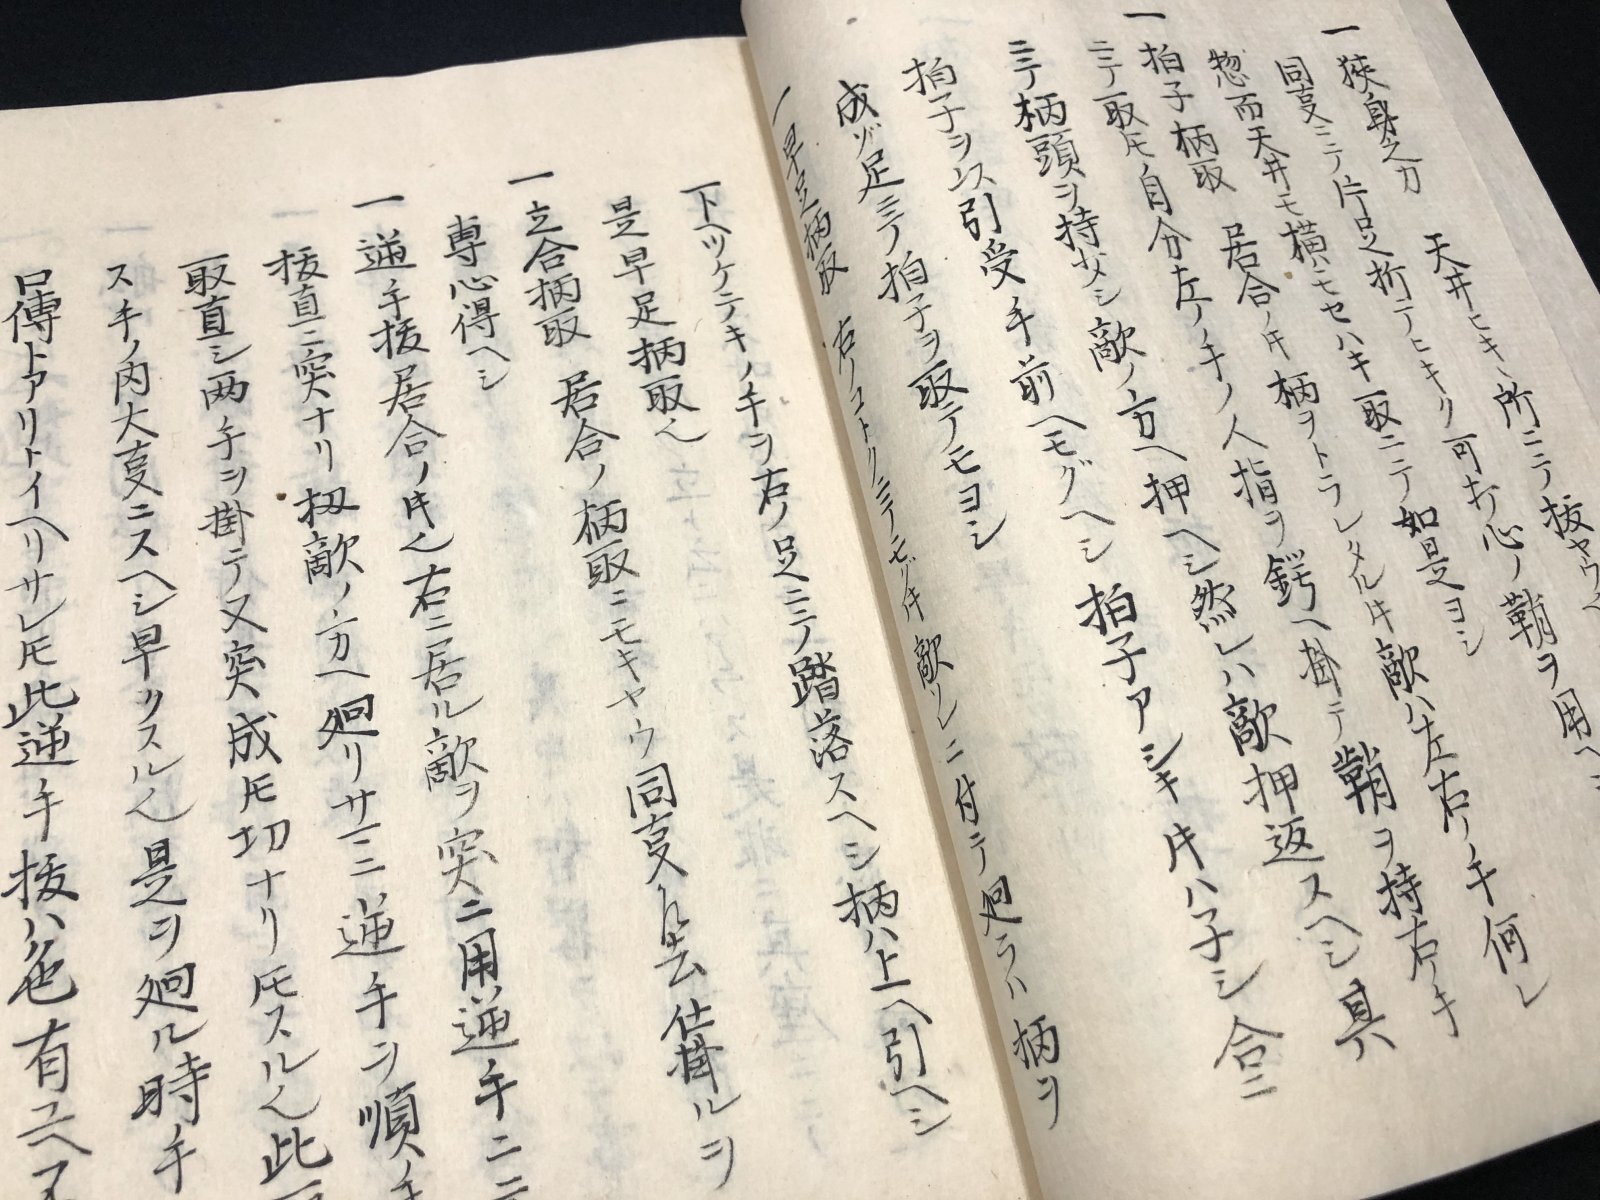 一狭身之刀 天井ヒキヽ所ニテ抜ヤウ
同支ニテ片足折テヒキク可打心ノ鞘ヲ用ヘシ
惣而天井モ横ニモセハキ取ニテ如是ヨシ
一拍子柄取 居合ノ㐧柄ヲトラレタル㐧敵ハ左右ノ手何レ
ニテ取𪜈自分左ノ手ノ人指ヲ鍔ヘ掛テ鞘ヲ持右ノ手
ニテ柄頭ヲ持少シ敵ノ方ヘ押ヘシ然レハ敵押返スヘシ其
拍子ヲ引受手前ヘモグヘシ拍子アシキ㐧ハ子シ合ニ
成ヅ足ニテ拍子ヲ取テモヨシ
一早足柄取 右ノコトクニテモグ㐧敵ソレニ付テ廻ラハ柄ヲ
下ヘツケテキノ手ヲ右ノ足ニテ踏落スヘシ柄ハ上ヘ引ヘシ
是早足柄取也
一立合柄取 居合ノ柄取ニモキヤウ同支也去仕掛ルヲ
専心得ヘシ
一逆手抜居合ノ㐧也右ニ居ル敵ヲ突ニ用逆手ニテ
抜直ニ突ナリ扨敵ノ方ヘ廻リサマニ逆手ヲ順手
取直シ両手ヲ掛テ又突成𪜈切ナリ𪜈スル也此
ス手ノ内大支ニスヘシ早クスル也是ヲ廻ル時手
口傳トアリトイヘリサレ𪜈此逆手抜ハ色有ユヘ